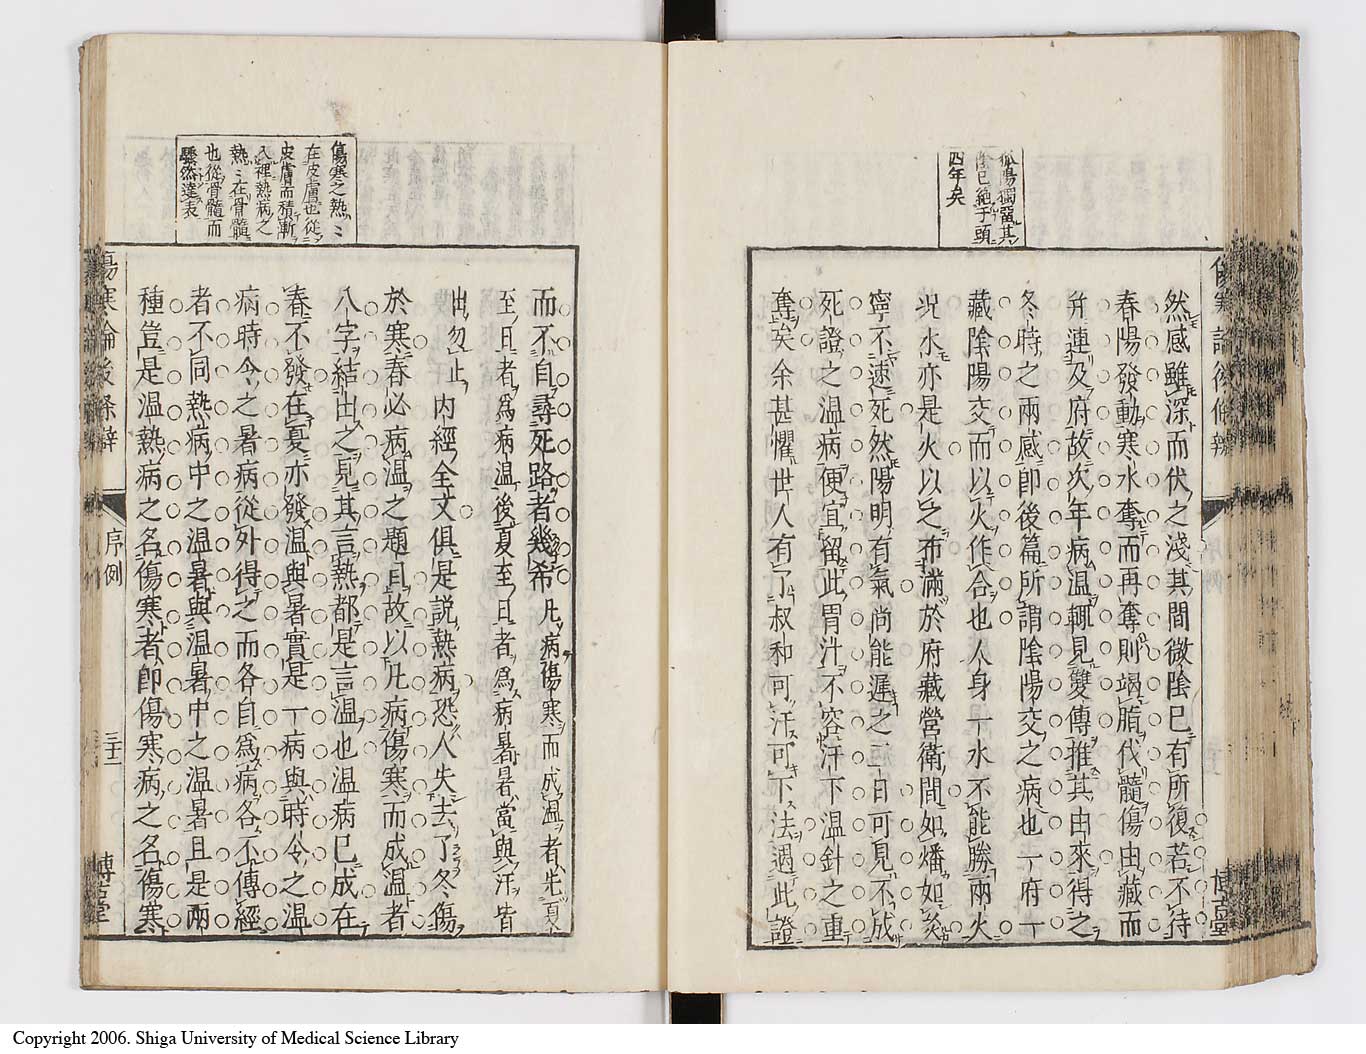 孤陽獨畱其
陰已絕于頭
四年矣
然感雖深而伏之淺其間微陰已有所復若不待
春陽發動寒水奪而再奪則竭脂伐髓傷由藏而
升連及府故次年病溫輒見雙傳推其由來得之
冬時之兩感卽後篇所謂陰陽交之病也一府一
藏陰陽交而以火作合也人身一水不能勝兩火
况水亦是火以之布滿於府藏營衛間如燔如炎
寧不速死然陽明有氣尚能遲之二日可見不成
死證之溫病便宜留此胃汁不容汗下溫針之重
奪矣余甚懼世人有了叔和可汗可下法遇此證
傷寒論後條辨
序例
傷寒之熱〻
在皮膚也從
皮膚而積漸
入裡熱病之
熱〻在骨髓
也從骨髓而
驟然達表
而不自尋死路者幾希凡病傷寒而成溫者先夏
至日者爲病溫後夏至日者爲病暑暑當與汗皆
出勿止內經全文俱是説熱病恐人失去了冬傷
於寒春必病溫之題目故以凡病傷寒而成溫者
八字結出之見其言熱都是言溫也溫病已成在
春不發在夏亦發溫與暑實是一病與時令之溫
病時令之暑病從外得之而各自爲病各不傳經
者不同熱病中之溫暑與溫暑中之溫暑且是兩
種豈是溫熱病之名傷寒者卽傷寒病之名傷寒
傷寒論後條辨
序例
三十一
博古堂
Copyright 2006. Shiga University of Medical Science Library